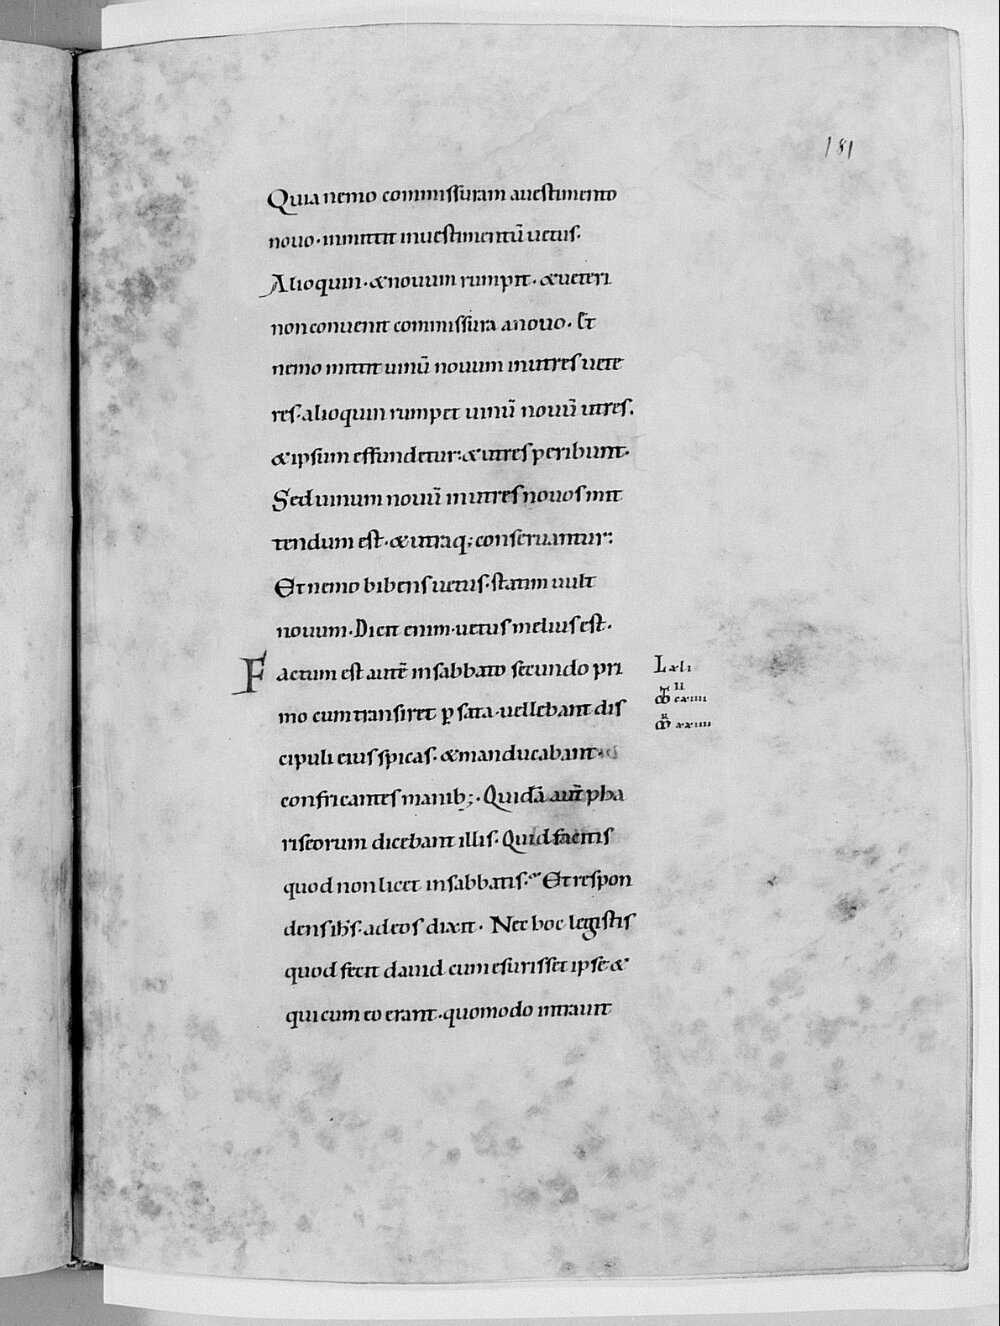 181
Quia nemo commissuram auestimento
nouo · inmittit inuestimentū uetus.
Alioquin · & nouum rumpit · & ueteri
non conuenit commissura anouo · Et
nemo mittit uinū nouum inutres uete
res · alioquin rumpet uinū nouū utres.
& ipsum effundetur : & utres peribunt ·
Sed uinum nouū inutres nouos mit
tendum est · & utraq; conseruantur :
Et nemo bibens uetus · statim uult
nouum · Dicit enim · uetus melius est ·
Factum est autē insabbato secundo pri
mo cum transiret ꝑ sata · uellebant dis
cipuli eius spicas · & manducabant
confricantes manib; · Quidā aut̄ pha
riseorum dicebant illis · Quid facitis
quod non licet insabbatis · Et respon
dens ih̄s · adeos dixit · Nec hoc legistis
quod fecit dauid cum esurisset ipse &
qui cum eo erant · quomodo intrauit
L xli
II
cxiiii
xxiiii